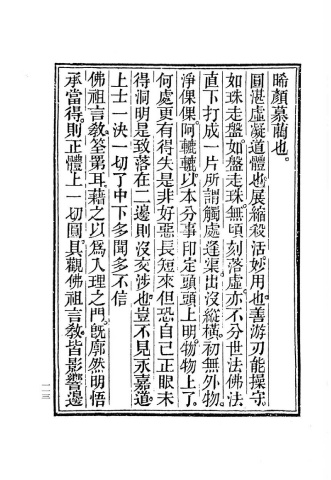 晞顏慕藺也。
圓湛虛凝道體也。展縮殺活妙用也。善游刃能操守。
如珠走盤。如盤走珠。無頃刻落虛。亦不分世法佛法。
直下打成一片。所謂觸處逢渠。出沒縱橫。初無外物。
淨倮倮阿轆轆。以本分事印定。頭頭上明。物物上了。
何處更有得失是非好惡長短來。但恐自己正眼未
得洞明。是致落在二邊。則沒交涉也。豈不見永嘉道。
上士一決一切了中下多聞多不信
佛祖言教。筌罤耳。藉之以為入理之門。既廓然明悟
承當得。則正體上一切圓具。觀佛祖言教。皆影響邊
一三